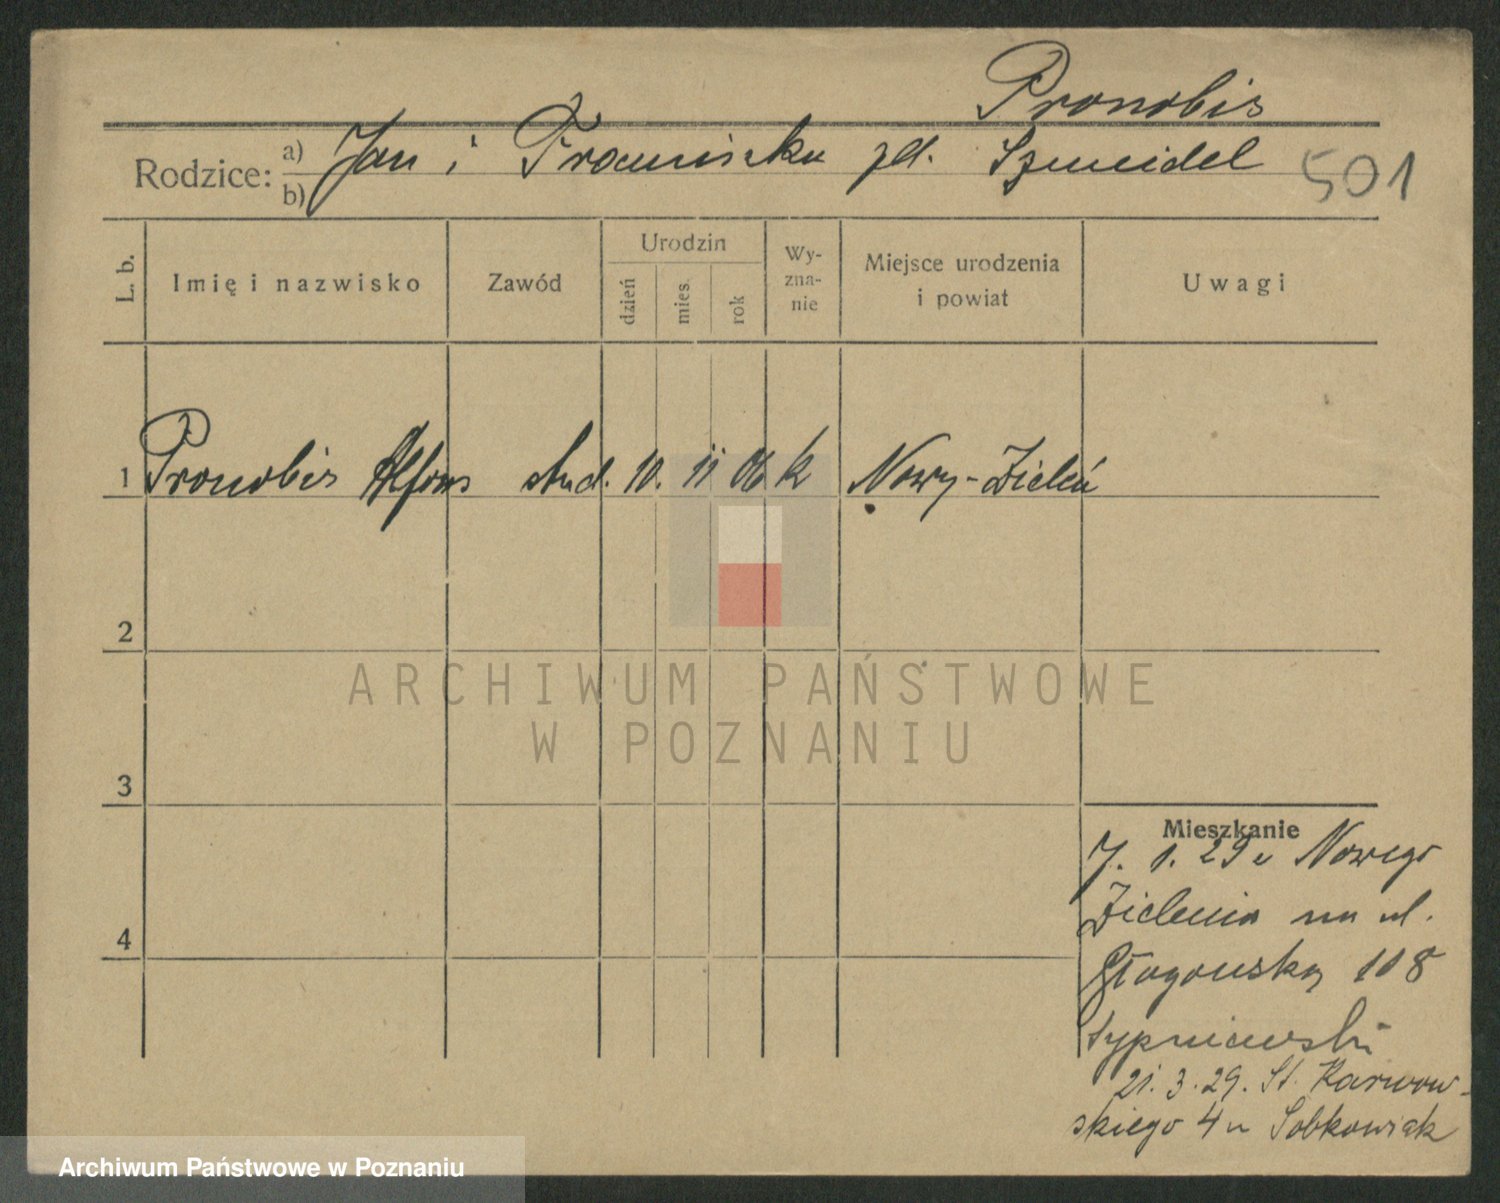 Pronobis
Rodzice: a) b) Jan i Franciszka zd. Szmeidel 501
L. b. Imię i nazwisko Zawód Urodzin dzień mies. rok Wy-zna-nie Miejsce urodzenia i powiat Uwagi
1 Pronobis Alfons stud. 10. 11 06 k Nowy-Zieleń
2
3
Mieszkanie
7. 1. 29 z Nowego
Zielenia na ul.
4
Głogowską 108
Sypniewski
21. 3. 29. St. Karwow-
skiego 4 u Sobkowiak
ARCHIWUM PAŃSTWOWE
W POZNANIU
Archiwum Państwowe w Poznaniu